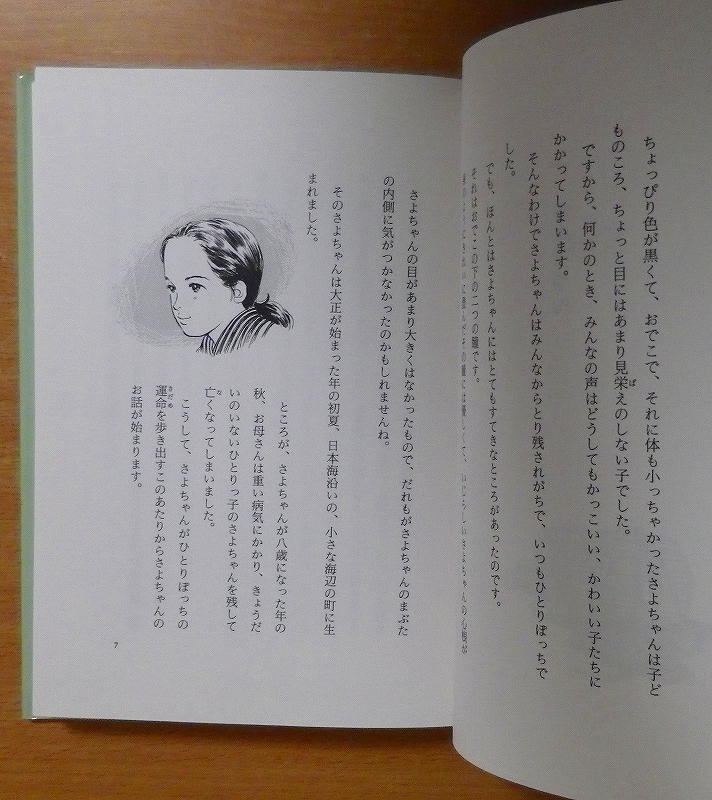 ちょっぴり色が黒くて、おでこで、それに体も小っちゃかったさよちゃんは子ど
ものころ、ちょっと目にはあまり見栄えのしない子でした。
ば
ですから、何かのとき、みんなの声はどうしてもかっこいい、かわいい子たちに
かかってしまいます。
そんなわけでさよちゃんはみんなからとり残されがちで、いつもひとりぽっちで
した。
でも、ほんとはさよちゃんにはとてもすてきなところがあったのです。
それはおでこの下の二つの瞳です。
さよちゃんの目があまり大きくはなかったもので、だれもがさよちゃんのまぶた
の内側に気がつかなかったのかもしれませんね。
そのさよちゃんは大正が始まった年の初夏、日本海沿いの、小さな海辺の町に生
まれました。
ところが、さよちゃんが八歳になった年の
秋、お母さんは重い病気にかかり、きょうだ
いのいないひとりっ子のさよちゃんを残して
亡くなってしまいました。
な
こうして、さよちゃんがひとりぽっちの
運命を歩き出すこのあたりからさよちゃんの
さだめ
お話が始まります。
7